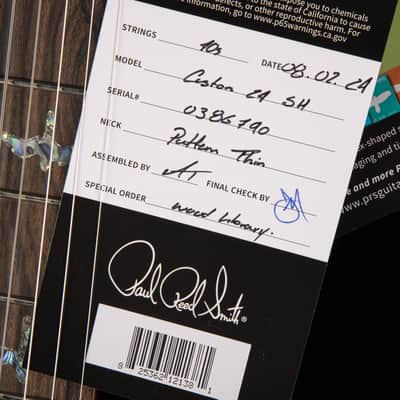 you to chemicals
to the state of California to cause
defects, or other reproductive harm. For
information, go to www.p65warnings.ca.gov
STRINGS 10s DATE 08.02.24
MODEL Custom 24 SH
SERIAL# 0386790
NECK Pattern Thin
ASSEMBLED BY AT FINAL CHECK BY
SPECIAL ORDER wood Library.
Paul Reed Smith®
8 25362 12138 1
x-shaped
aging and
and more
www.prsguita